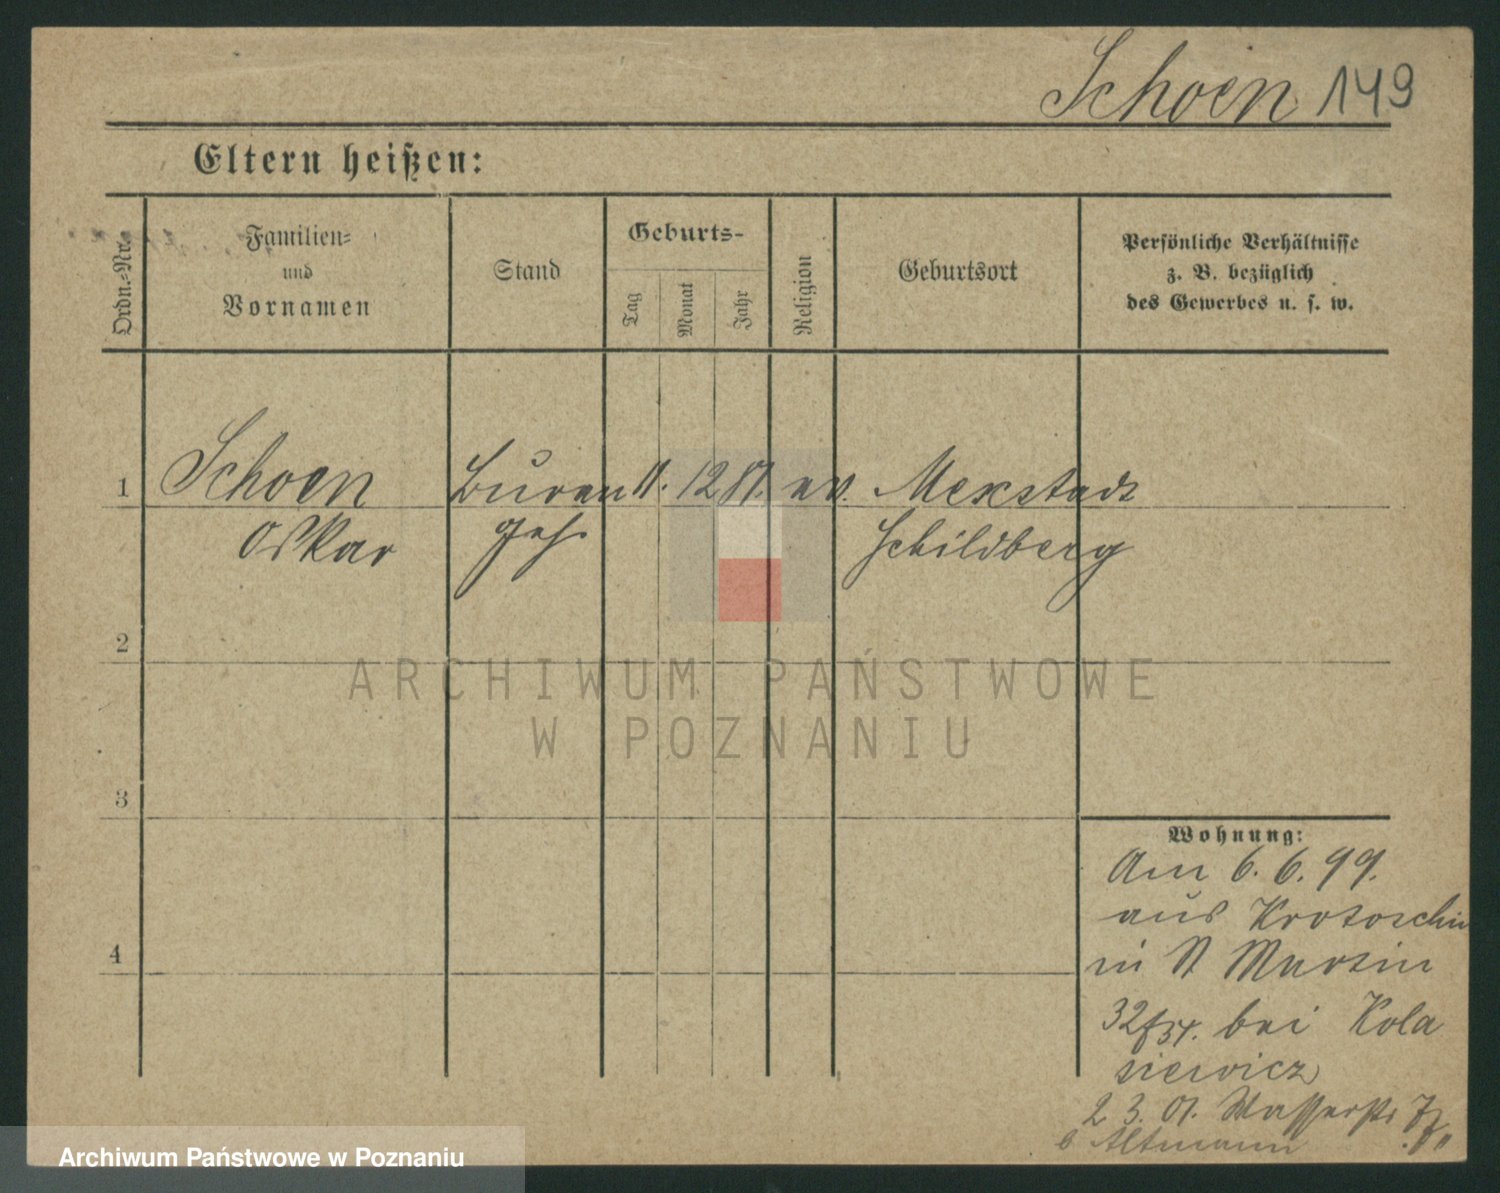 Schoen 149
Eltern heißen:
Ordn.-Nr.
Familien-
und
Vornamen
Stand
Geburts-
Tag
Monat
Jahr
Religion
Geburtsort
Persönliche Verhältnisse
z. B. bezüglich
des Gewerbes u. s. w.
1 Schoen Bureau 11. 12 81. ev. Mixstadt
Oskar geh. Schildberg
2
3
4
Wohnung:
Am 6. 6. 99.
aus Krotoschin
in St Martin
32 bei Kola
siewicz
2. 3. 01. Wasserstr
b Altmann
ARCHIWUM PAŃSTWOWE
W POZNANIU
Archiwum Państwowe w Poznaniu